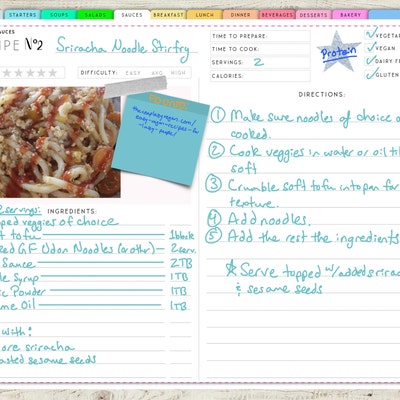 STARTERS SOUPS SALADS SAUCES BREAKFAST LUNCH DINNER BEVERAGES DESSERTS BAKERY
SAUCES
IPE Nº2 Sriracha Noodle Stirfry
DIFFICULTY: EASY AVG HIGH
TIME TO PREPARE:
TIME TO COOK:
SERVINGS: 2
CALORIES:
Protein
VEGETAR
VEGAN
DAIRY F
GLUTEN
thecraftingvegan.com/
easy-vegan-recipes-for
-lazy-people/
2 servings: INGREDIENTS:
pped veggies of choice
t tofu 1 block
ed GF Udon Noodles (or other) 2 serv.
Sauce 2TB
le Syrup 1TB
ic Powder 1TB
me Oil 1TB
with:
ore sriracha
asted sesame seeds
DIRECTIONS:
① Make sure noodles of choice a
cooked.
② Cook veggies in water or oil til
soft
③ Crumble soft tofu into pan for
texture.
④ Add noodles.
⑤ Add the rest the ingredients
Serve topped w/ added srirac
& sesame seeds